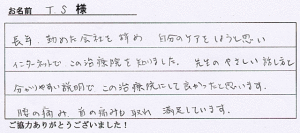 お名前 TS 様
長年、勤めた会社を辞め 自分のケアをしようと思い
インターネットでこの治療院を知りました。 先生のやさしい話し方と
分かりやすい説明で この治療院にして良かったと思います。
腰の痛み、首の痛みも取れ 満足しています。
ご協力ありがとうございました!